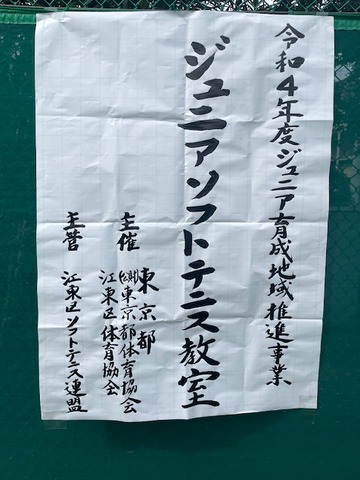 令和4年度ジュニア育成地域推進事業
ジュニアソフトテニス教室
主催 東京都
(公財)東京都体育協会
江東区体育協会
主管 江東区ソフトテニス連盟